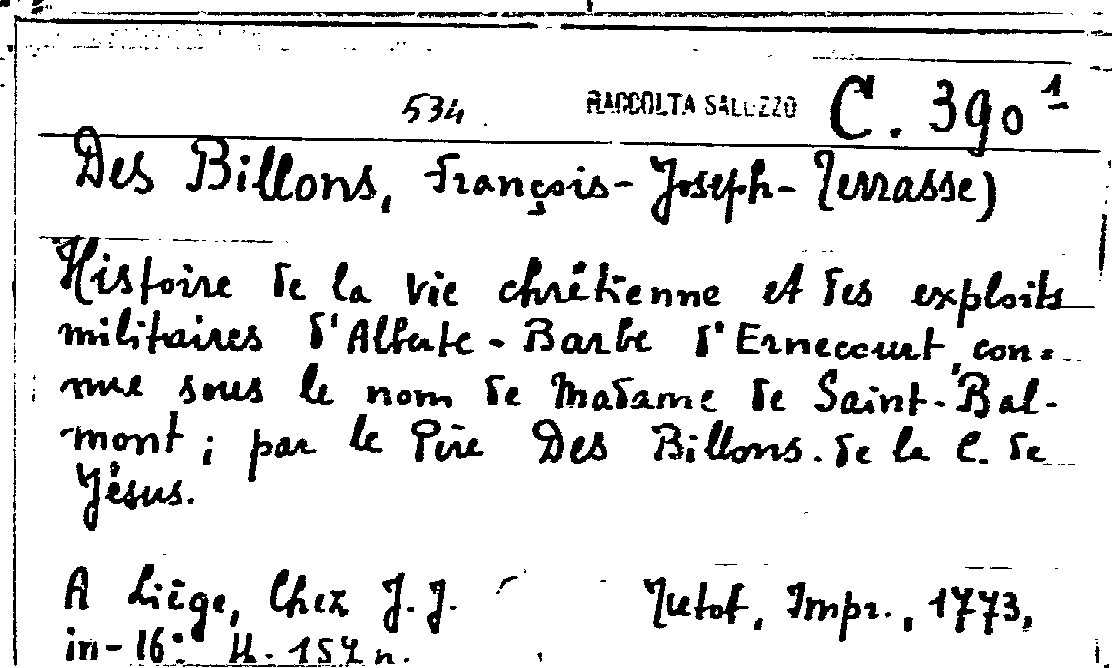 534 RACCOLTA SALUZZO C. 390 1
Des Billons, François-Joseph-Terrasse)
Histoire de la vie chrétienne et des exploits
militaires d'Alberte-Barbe d'Ernecourt, con=
nue sous le nom de Madame de Saint-Bal-
mont; par le Père Des Billons. de la C. de
Jésus.
A Liège, Chez J. J. Tutot, Impr., 1773,
in-16: